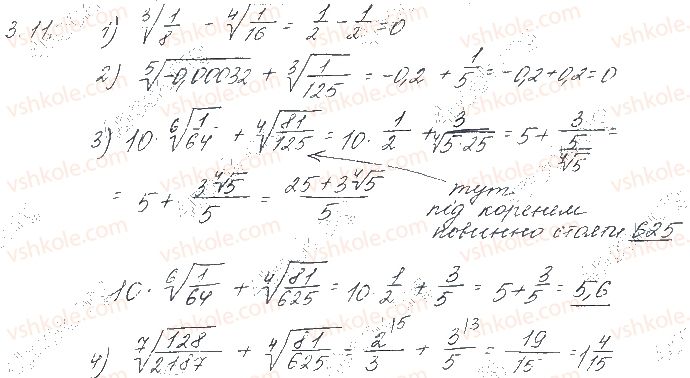 3.11. 1) ∛(1/8) - ∜(1/16) = 1/2 - 1/2 = 0
2) ⁵√(-0,00032) + ∛(1/125) = -0,2 + 1/5 = -0,2 + 0,2 = 0
3) 10 · ⁶√(1/64) + ∜(81/125) = 10 · 1/2 + 3/∜(5·25) = 5 + 3/(5/∜5) =
= 5 + 3∜5/5 = (25 + 3∜5)/5
тут
під коренем
повинно стояти 625
10 · ⁶√(1/64) + ∜(81/625) = 10 · 1/2 + 3/5 = 5 + 3/5 = 5,6
4) ⁷√(128/2187) + ∜(81/625) = 2/3 + 3/5 = 19/15 = 1 4/15
vshkole.com